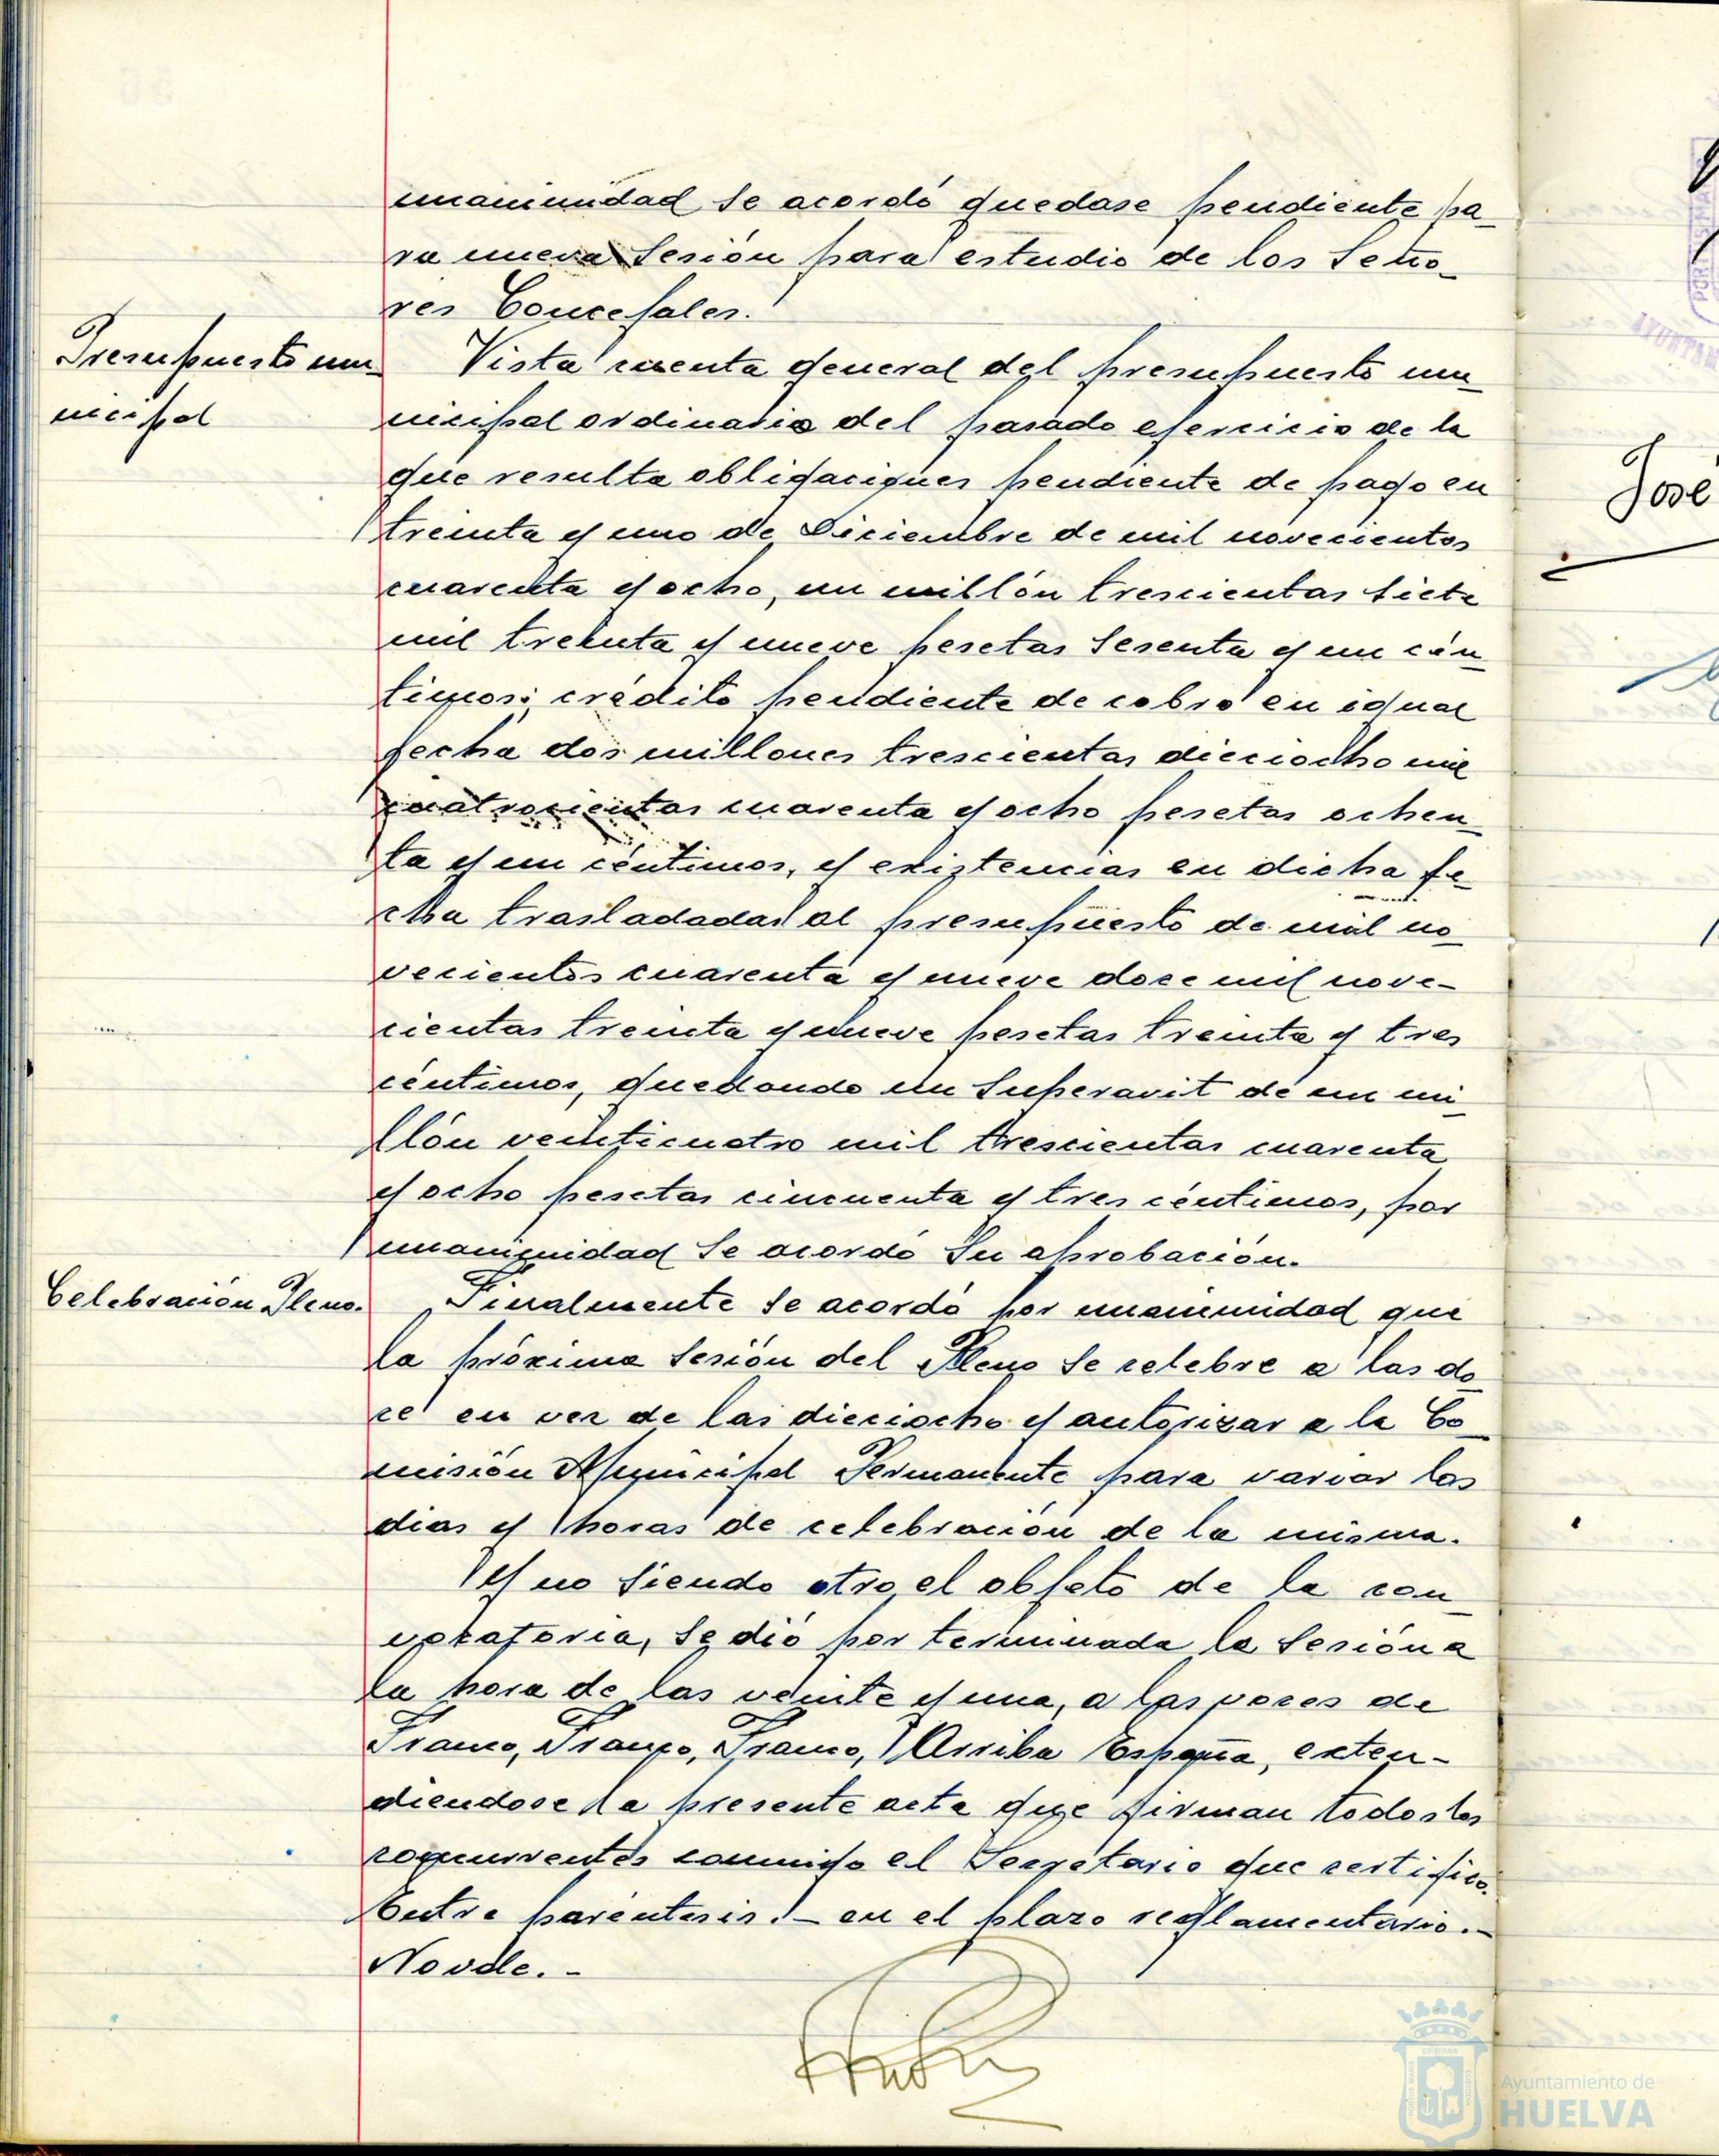 unanimidad se acordó quedase pendiente pa_
ra nueva Sesión para estudio de los Seño_
res Concejales.
Presupuesto mu_
nicipal
Vista cuenta general del presupuesto mu_
nicipal ordinario del pasado ejercicio de la
que resulta obligaciones pendiente de pago en
treinta y uno de Diciembre de mil novecientos
cuarenta y ocho, un millón trescientas siete
mil treinta y nueve pesetas sesenta y un cén_
timos; crédito pendiente de cobro en igual
fecha dos millones trescientas dieciocho mil
cuatrocientas cuarenta y ocho pesetas ochen_
ta y un céntimos, y existencias en dicha fe_
cha trasladadas al presupuesto de mil no_
vecientos cuarenta y nueve doce mil nove-
cientas treinta y nueve pesetas treinta y tres
céntimos, quedando un Superavit de un mi_
llón veinticuatro mil trescientas cuarenta
y ocho pesetas cincuenta y tres céntimos, por
unanimidad se acordó su aprobación.
Celebración Pleno.
Finalmente se acordó por unanimidad que
la próxima Sesión del Pleno se celebre a las do_
ce en vez de las dieciocho y autorizar a la Co_
misión Municipal Permanente para variar los
dias y horas de celebración de la misma.
Y no siendo otro el objeto de la con_
vocatoria, se dió por terminada la Sesión a
la hora de las veinte y una, a las voces de
Franco, Franco, Franco, ¡Arriba España, exten-
diendose la presente acta que firman todos los
concurrentes conmigo el Secretario que certifico.
Entre parentesis.- en el plazo reglamentario.-
No vale.-
José
Ayuntamiento de
HUELVA